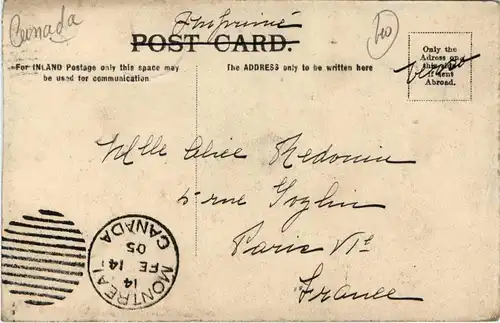 Canada
Imprimé
POST CARD.
For INLAND Postage only this space may
be used for communication
The ADDRESS only to be written here
Only the
Adress on
this side
if sent
Abroad.
Mlle Alice Redouin
5 rue Goghlin
Paris VIe
France
MONTREAL
14
FE 14
05
CANADA